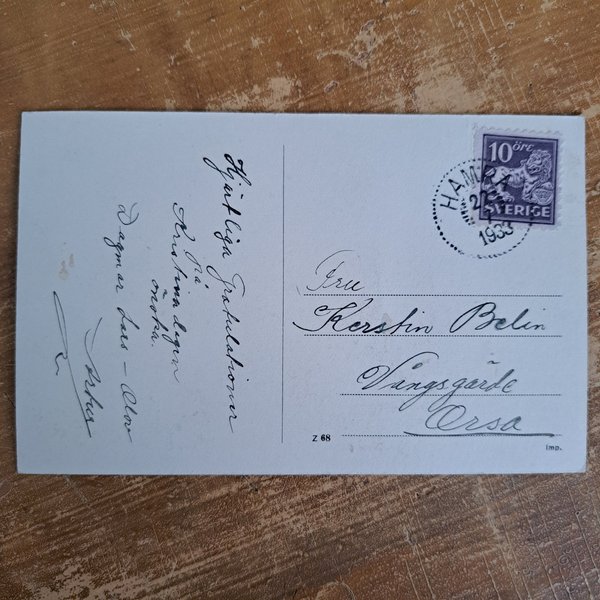 Hjärtliga Gratulationer
på
Kristinadagen
önska
Dagmar Lars-Olov
Artur
10 ÖRE
SVERIGE
HAMRA
27
7
1933
Fru
Kerstin Belin
Vångsgärde
Orsa
Z 68
Imp.